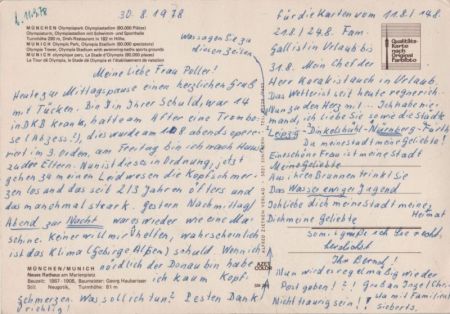 30.8.1978
MÜNCHEN Olympiapark, Olympiastadion (80.000 Plätze)
Olympiaturm, Olympiastadion mit Schwimm- und Sporthalle
Turmhöhe 290 m, Dreh-Restaurant in 182 m Höhe
MUNICH Olympia Park, Olympia Stadium (80.000 spectators)
Olympia Tower, Olympia Stadium with swimming and sports grounds
MUNICH Parc Olympique, Stade Olympique (80.000 spectateurs)
La Tour de Olympia, le Stade de Olympia et l'établissement de natation
Was sagen Sie zu
diesen Zeilen
Meine Liebe Frau Poller!
Heute zur Mittagspause einen herzlichen Gruß
mit Tücken. Bin Ihrer Schuld, war 14
in DKD krank, hatte am After eine Trombo-
se (Abzess!), dies wurde am 11.8 abends ope-
riert in 3. Orden, am Freitag bin ich nach Hau
zu der Eltern. Nun ist dieses in Ordnung, jetzt
gehen zu meinen Leidwesen die Kopfschmer-
zen los und das seit 2/3 Jahre öfters und
das manchmal stark. gestern Nachmittag/
Abend zur Nacht war es wieder wie eine Ma-
schine. Keiner will mir helfen, wahrscheinlich
ist das Klima (Gebirge Alpen) schuld. Wenn ich
nördlich der Donau bin habe
ich kaum Kopf-
schmerzen. Was soll ich tun? Besten Dank
MÜNCHEN/MUNICH
Neues Rathaus am Marienplatz
Bauzeit: 1867-1908, Baumeister: Georg Hauberisser
Stil: Neugotik, Turmhöhe: 81 m
Qualitäts-
Karte
nach
Original
Farbfoto
für die Karten vom 11.8/14.8.
21.8/24.8. Fam.
Gallist in Urlaub bis
31.8. Mein Chef der
Herr Korak ist auch in Urlaub.
Das Wetter ist seit heute regnerisch
Nun zu den Herz mit... Ich habe nie-
mand, ich liebe Sie sowie die Städte
Leipzig - Dinkelsbühl - Nürnberg - Fürth
Du meine Stadt meine Geliebte!
Ein schöne Frau ist meine Stadt
Meine Geliebte
Aus ihren Brunnen trinkt sie
Das Wasser ewiger Jugend
Ich liebe dich meine Stadt meine
Dich meine Geliebte Heimat
Somit grüße ich Sie recht
herzlichst
Ihr Bernd!
Nun wird er regelmäßig wieder
Post geben!?! Gruß an Ingel Chri-
Nicht traurig sein! sta mit Familie
Sieberts.